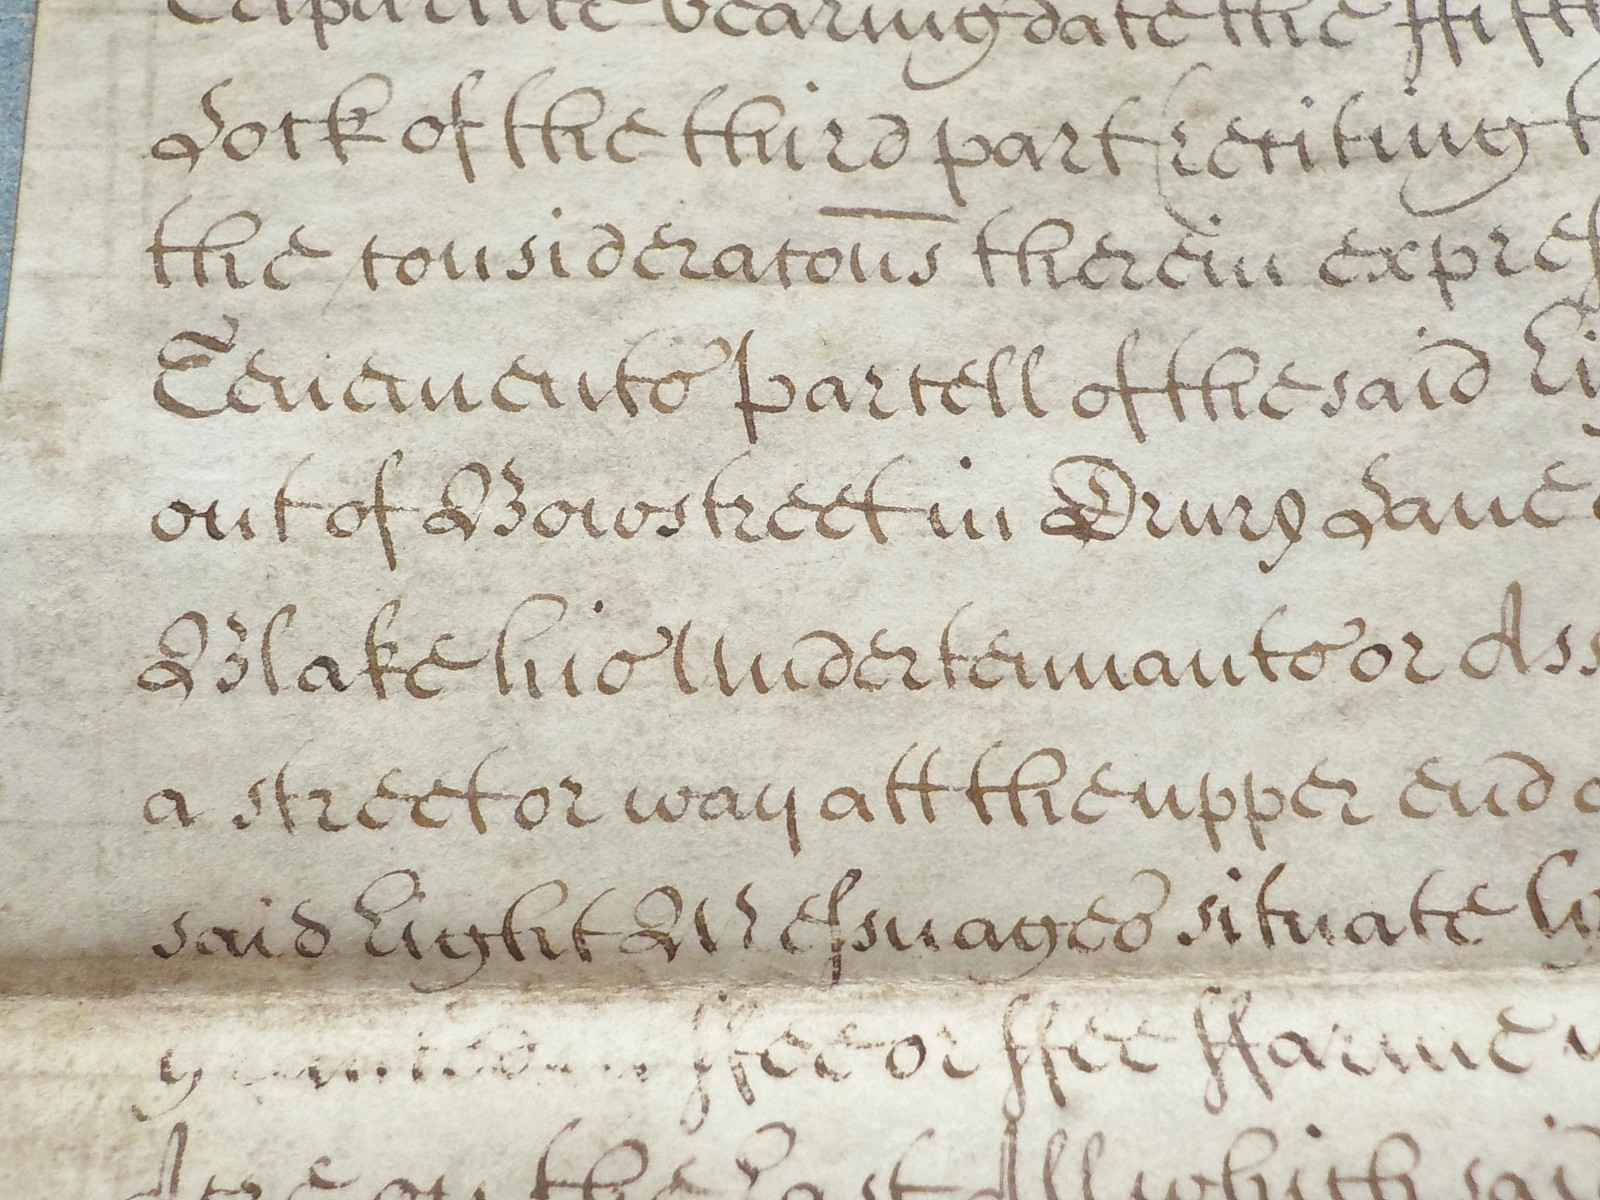 bearing date the ffifth
Lock of the third part (reciting
the consideracons therein expres
Tenements parcell of the said Ei
out of Bowstreet in Drury Lane
Blake his Undertennants or Ass
a street or way att the upper end
said Eight Messuages situate ly
ffee or ffee ffarme
on the East All which said